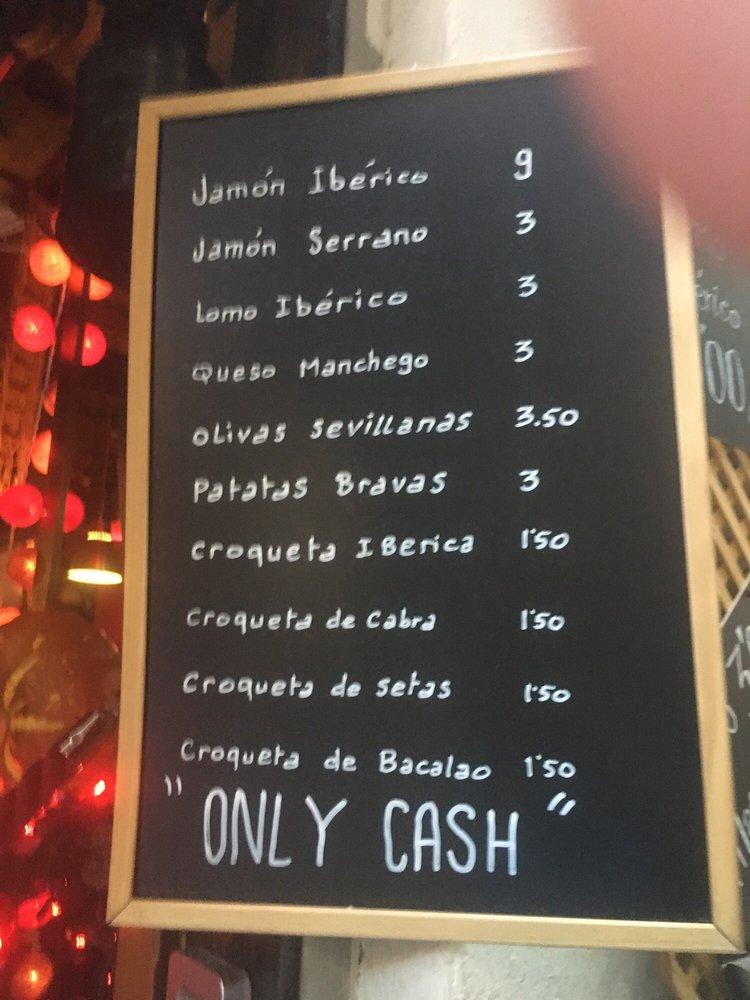 Jamón Ibérico 9
Jamón Serrano 3
Lomo Ibérico 3
Queso Manchego 3
Olivas Sevillanas 3.50
Patatas Bravas 3
Croqueta IBerica 1'50
Croqueta de Cabra 1'50
Croqueta de setas 1'50
Croqueta de Bacalao 1'50
"ONLY CASH"
érico
00